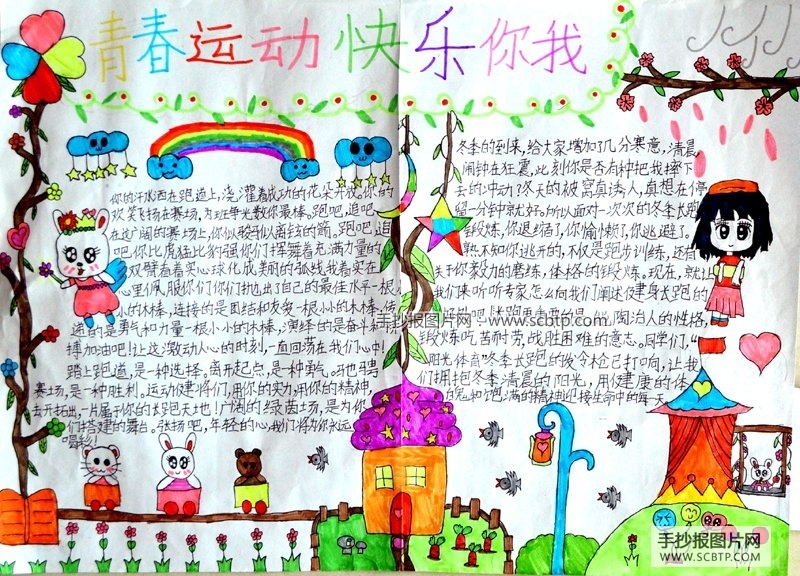 青春运动快乐你我
你的汗水洒在跑道上,浇灌着成功的花朵开放。你的
欢笑飞扬在赛场,为班争光数你最棒。跑吧,追吧
在这广阔的赛场上,你似骏马似离弦的箭。跑吧,追
吧你比虎猛比豹强你们挥舞着充满力量的
双臂看着实心球化成美丽的弧线我着实在
心里佩服你们你们掷出了自己的最佳水平一根
小小的木棒,连接的是团结和友爱一根小小的木棒,传
递的是勇气和力量一根小小的木棒,演绎的是奋斗和
搏加油吧!让这激动人心的时刻,一直回荡在我们心中!
踏上跑道,是一种选择。离开起点,是一种勇气。驰骋
赛场,是一种胜利。运动健将们,用你的实力,用你的精神,
去开拓出,一片属于你的长跑天地!广阔的绿茵场,是为你
们搭建的舞台。张扬吧,年轻的心,我们将为你永远
喝彩!
冬季的到来,给大家增加了几分寒意,清晨
闹钟在狂震,此刻你是否有种把我摔下
去的冲动?冬天的被窝真诱人,真想在停
留一分钟就好。所以面对一次次的冬季长跑
锻炼,你退缩了,你愉懒了,你逃避了。
熟不知你逃开的,不仅是跑步训练,还有
关于你毅力的磨练,体格的锻炼。现在,就让
我们来听听专家怎么向我们阐述健身长跑的
好处吧!长跑更重要的是,能陶冶人的性格,
锻炼吃苦耐劳,战胜困难的意志。同学们,“
阳光体育”冬季长跑的发令枪已打响,让我
们拥抱冬季清晨的阳光,用健康的体
白兔和饱满的精神迎接生命中的每一天
手抄报图片网 - www.scbtp.com
手抄报图片网
WWW.SCBTP.COM